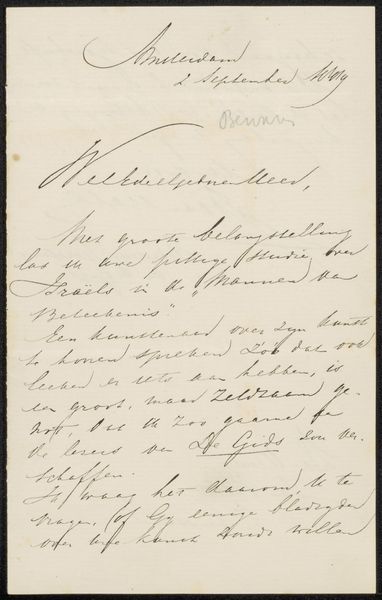 Amsterdam
2 September
WelEdelgeboren Heer,
Met groote belangstelling
las ik uwe pittige studie over
Israëls in de "Mannen van
Beteekenis".
Een kunstenaar over zyn kunst
te hooren spreken zóó dat ook
leeken er iets aan hebben, is
een groot, maar zeldzaam ge-
not, dat ik zoo gaarne
de lezers van De Gids zou ver-
schaffen.
Ik waag het daarom, U te
vragen, of Gy eenige bladzyden
over uwe kunst zoudt willen